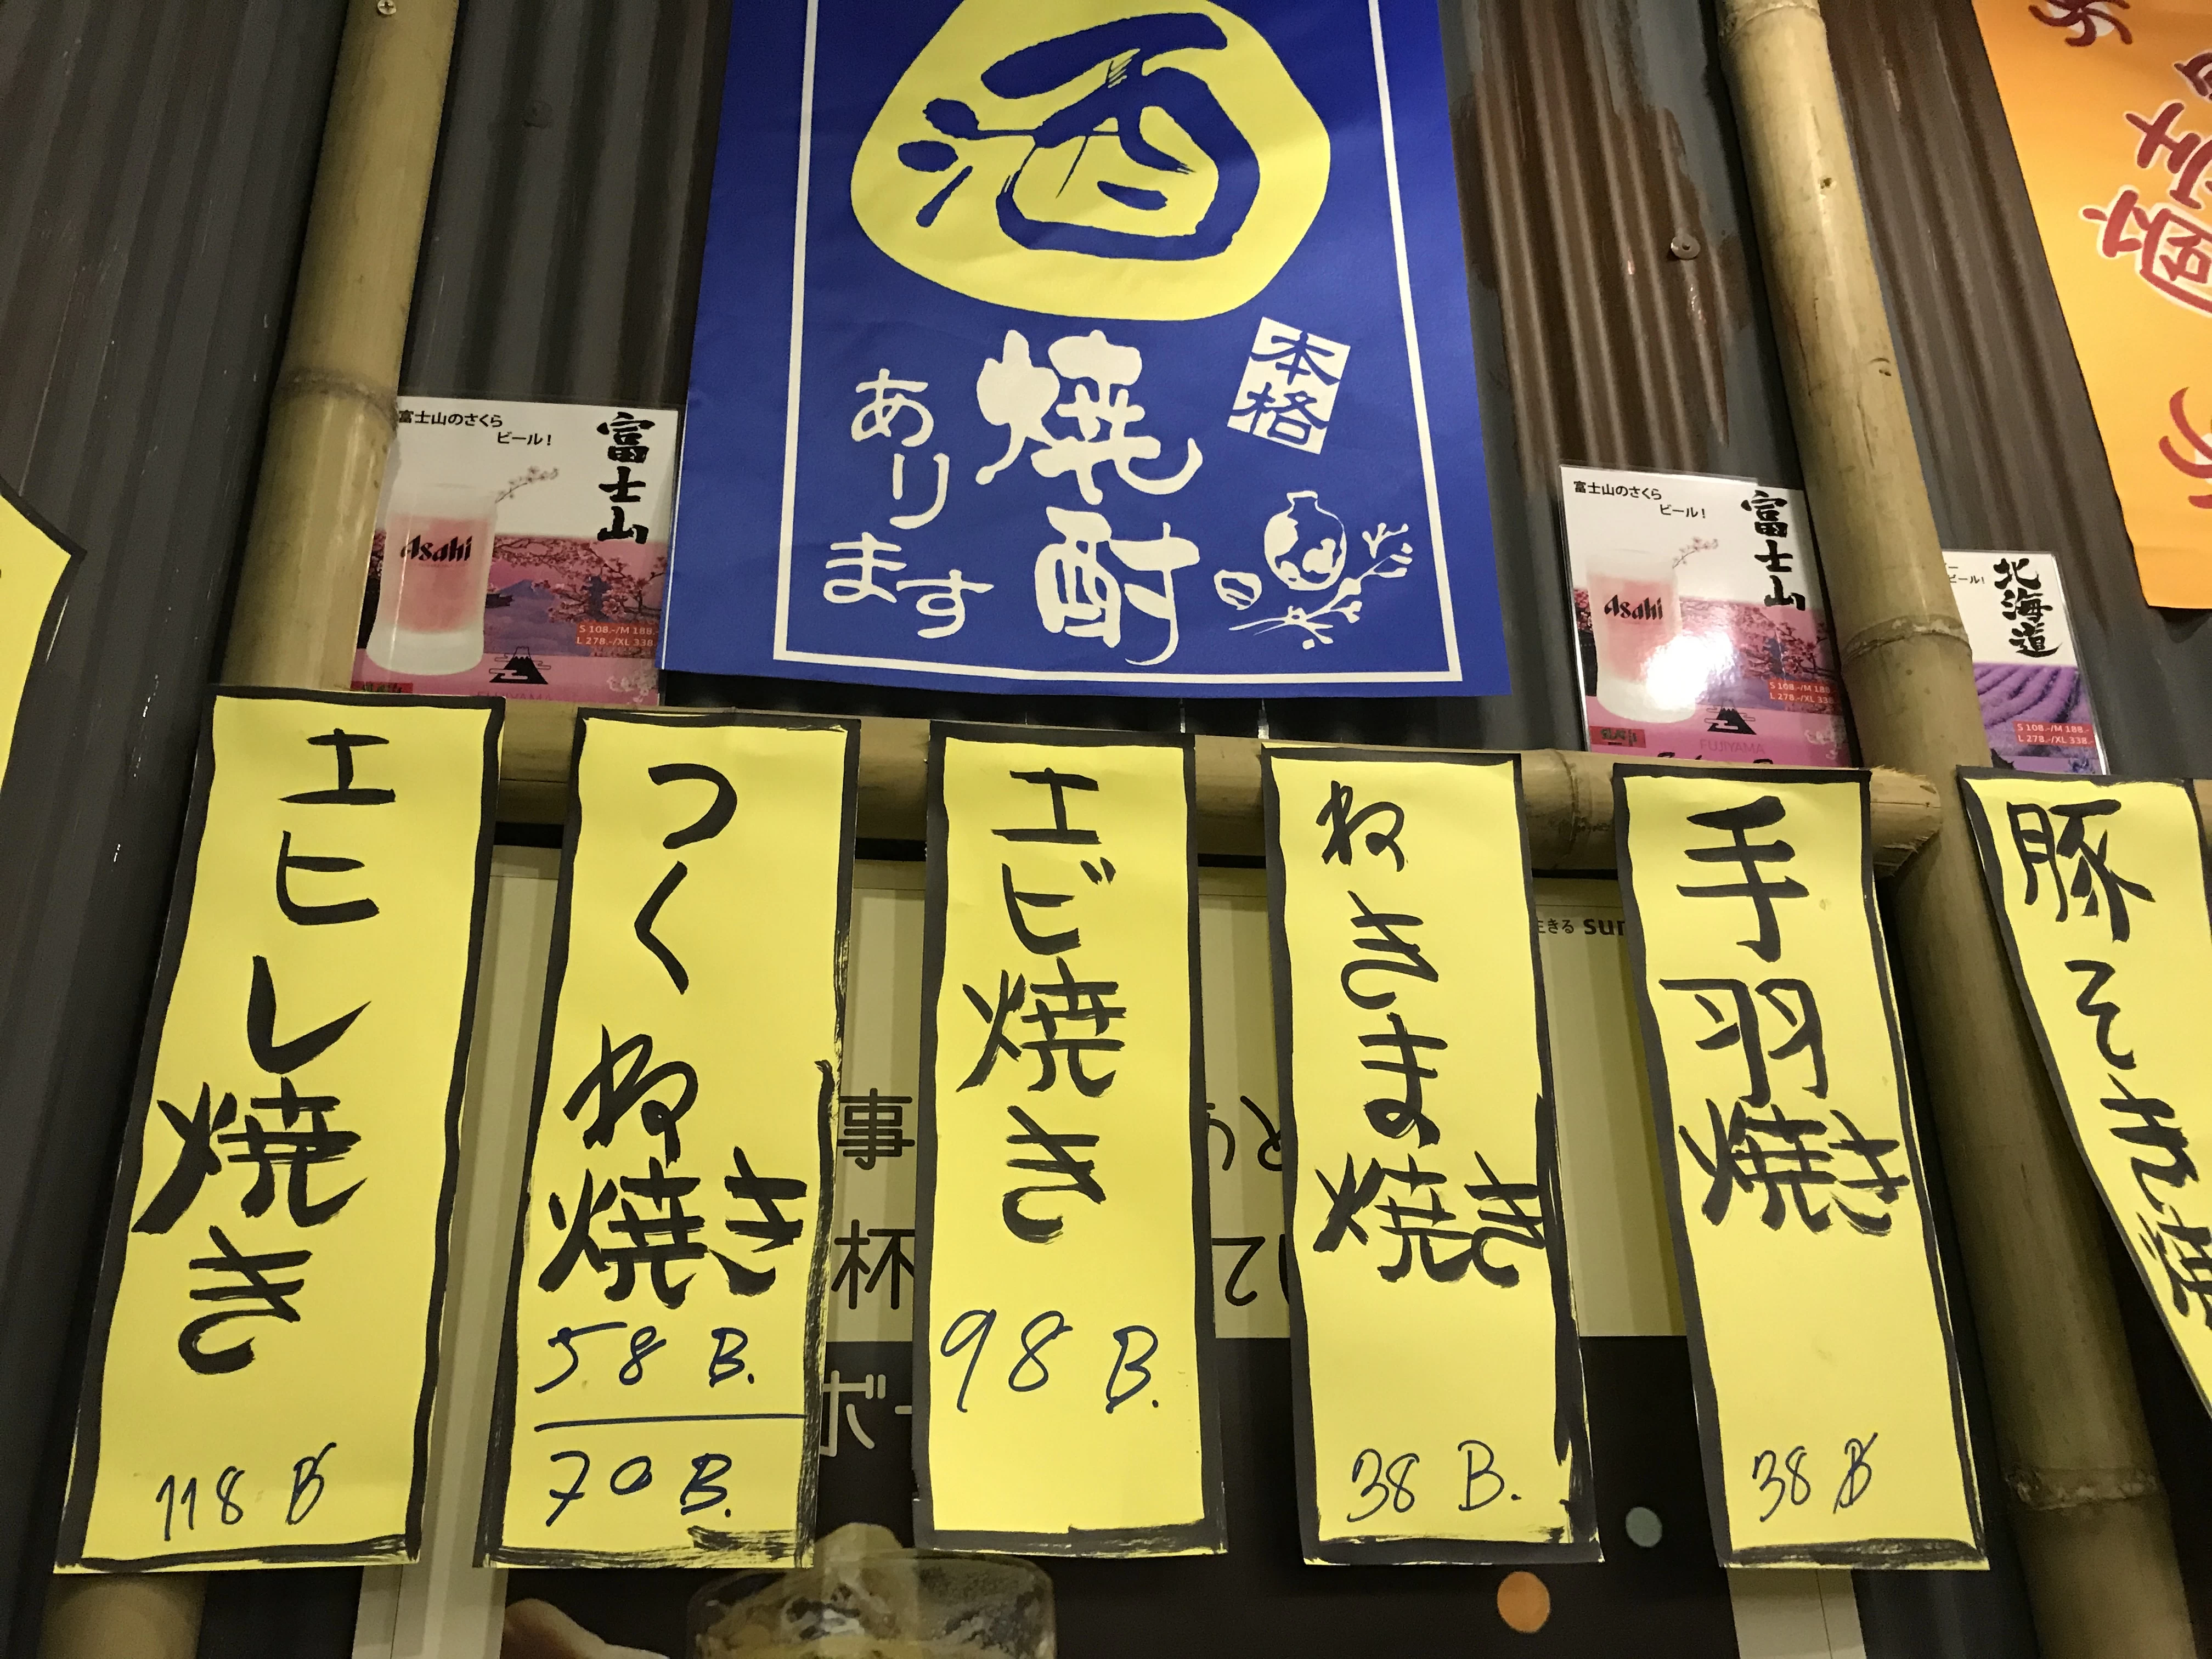 酒
本格
焼酎
あり
ます
富士山のさくら
ビール！
富士山
Asahi
S 108.-/M 188.
L 278.-/XL 338.
FUJIYAMA
富士山のさくら
ビール！
富士山
Asahi
S 108.-/M 188.
L 278.-/XL 338.
FUJIYAMA
ビール！
北海道
S 108.-/M 188.-
L 278.-/XL 338.
エヒレ焼き
118 B
つくね焼き
58 B.
70 B.
エビ焼き
98 B.
ねぎま焼き
38 B.
手羽焼き
38 B
豚そ
事
杯
きる